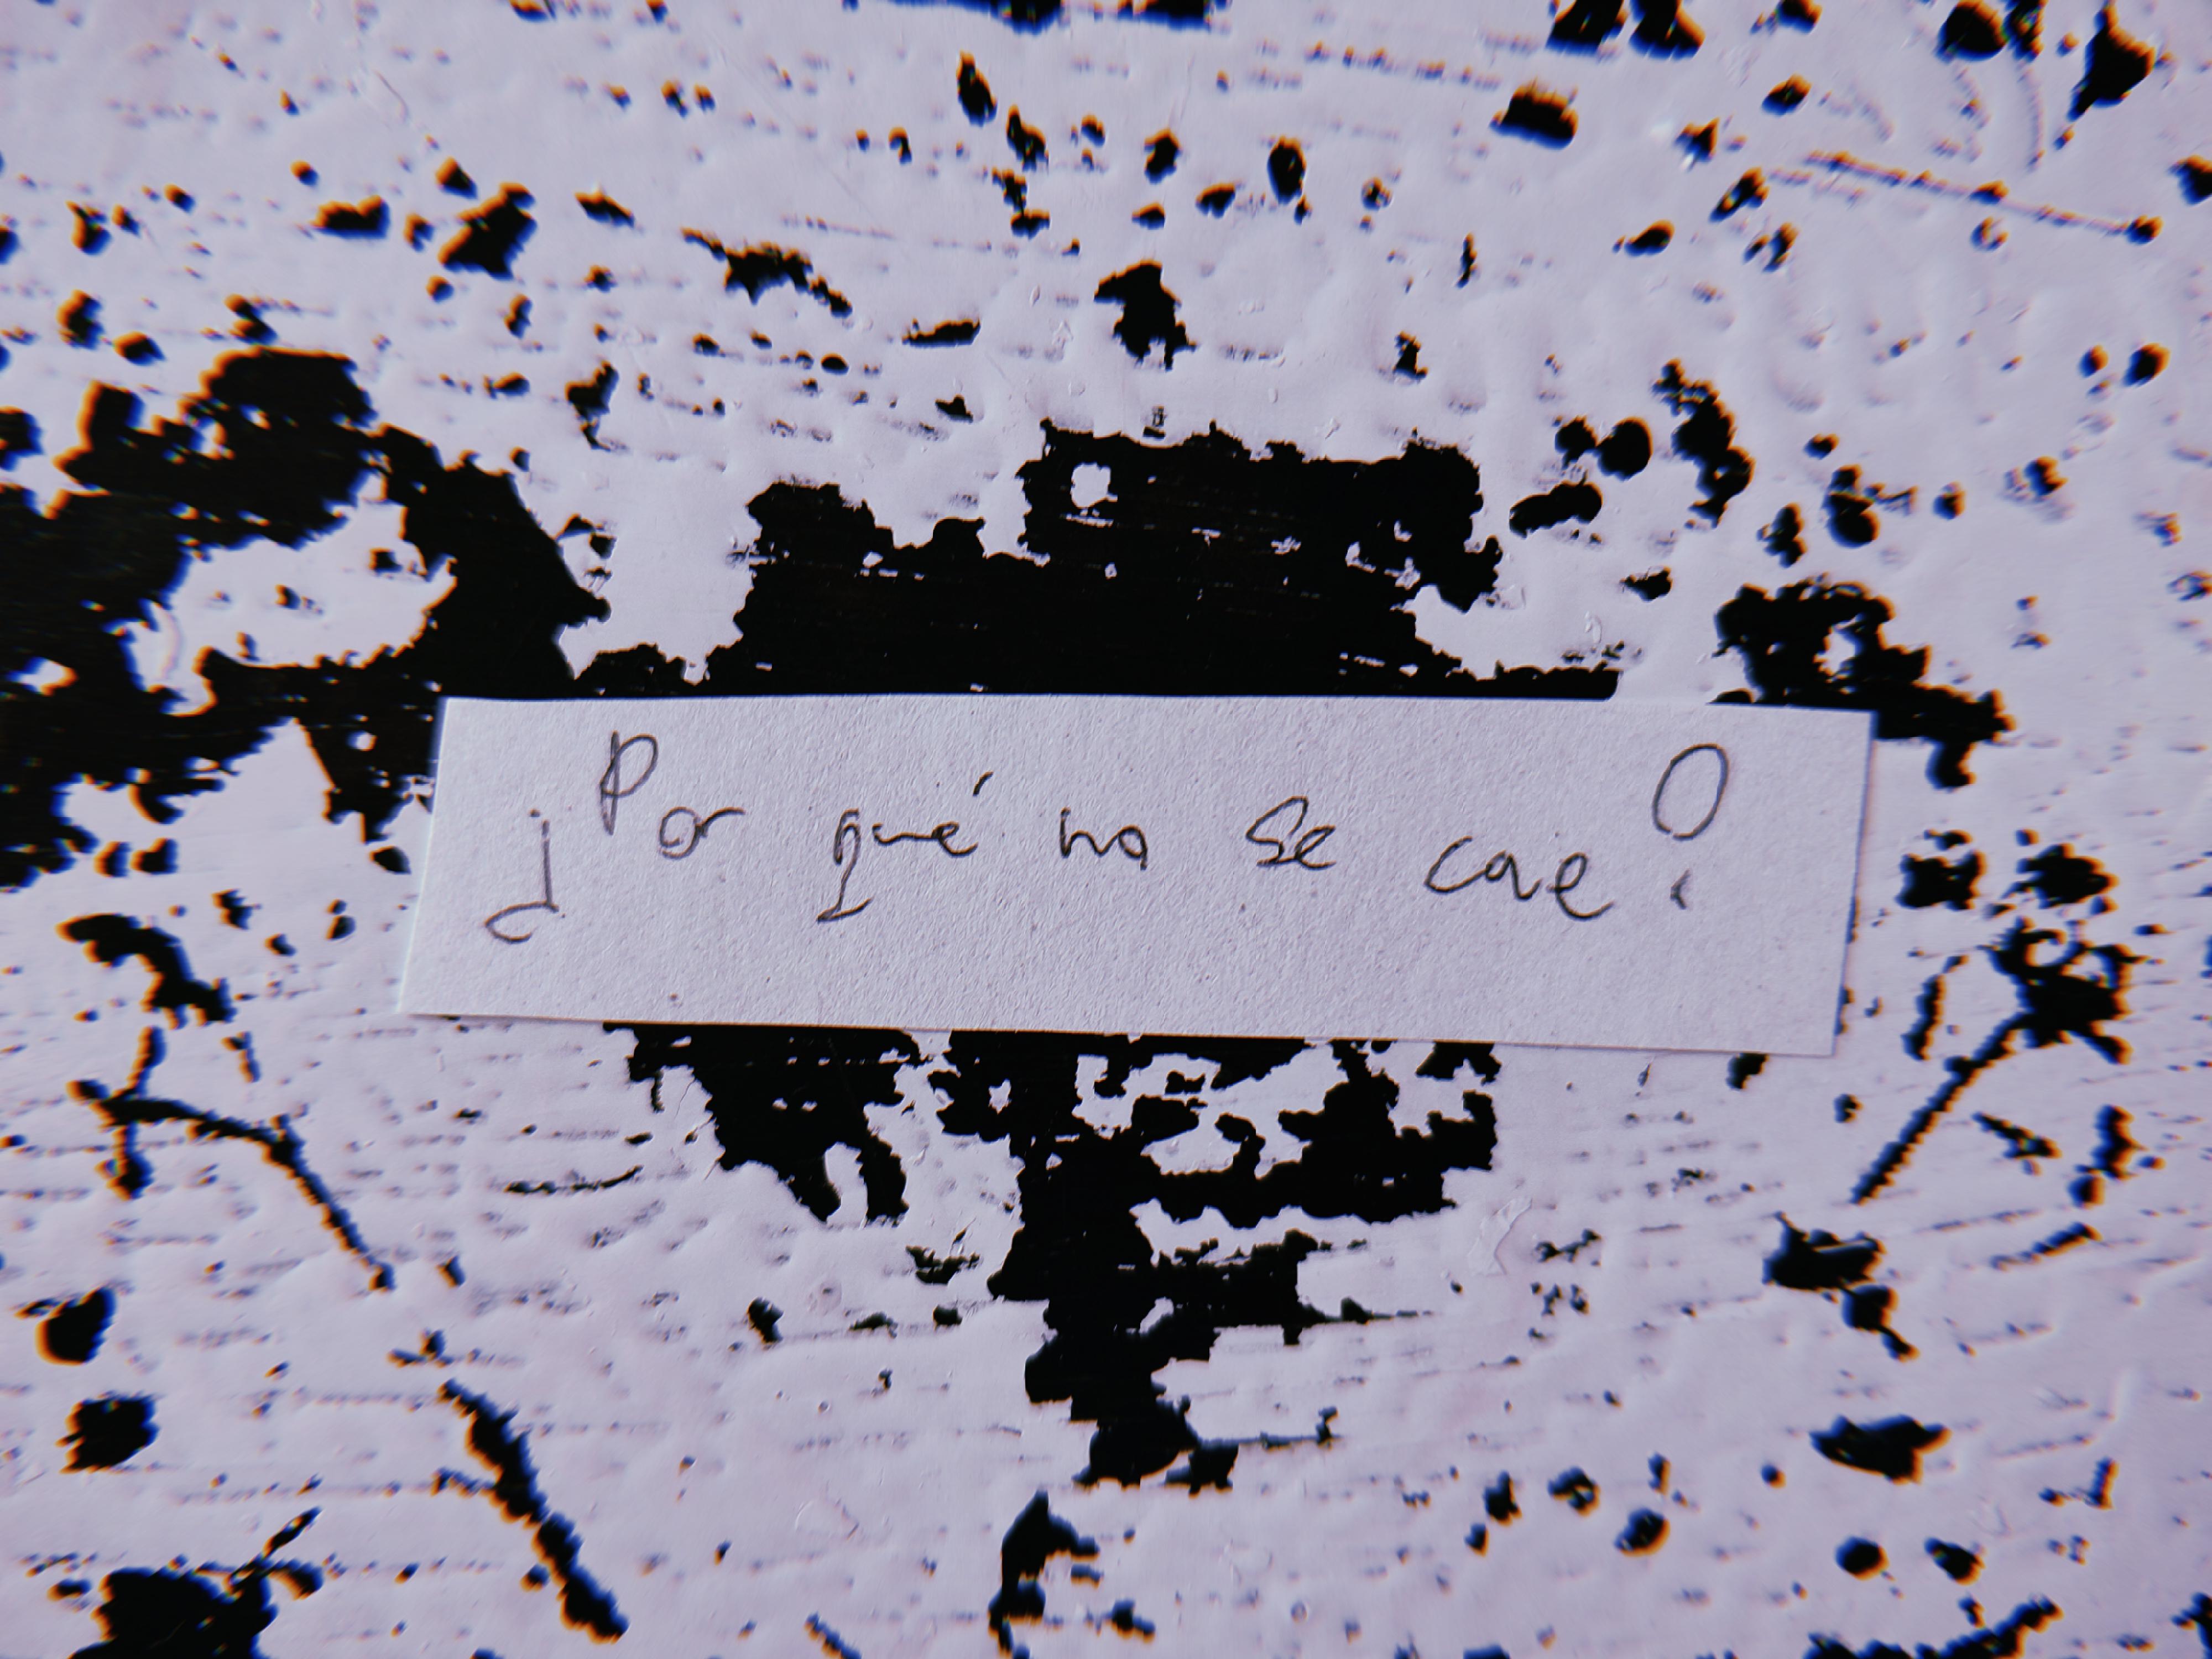 ¿Por qué no se cae?